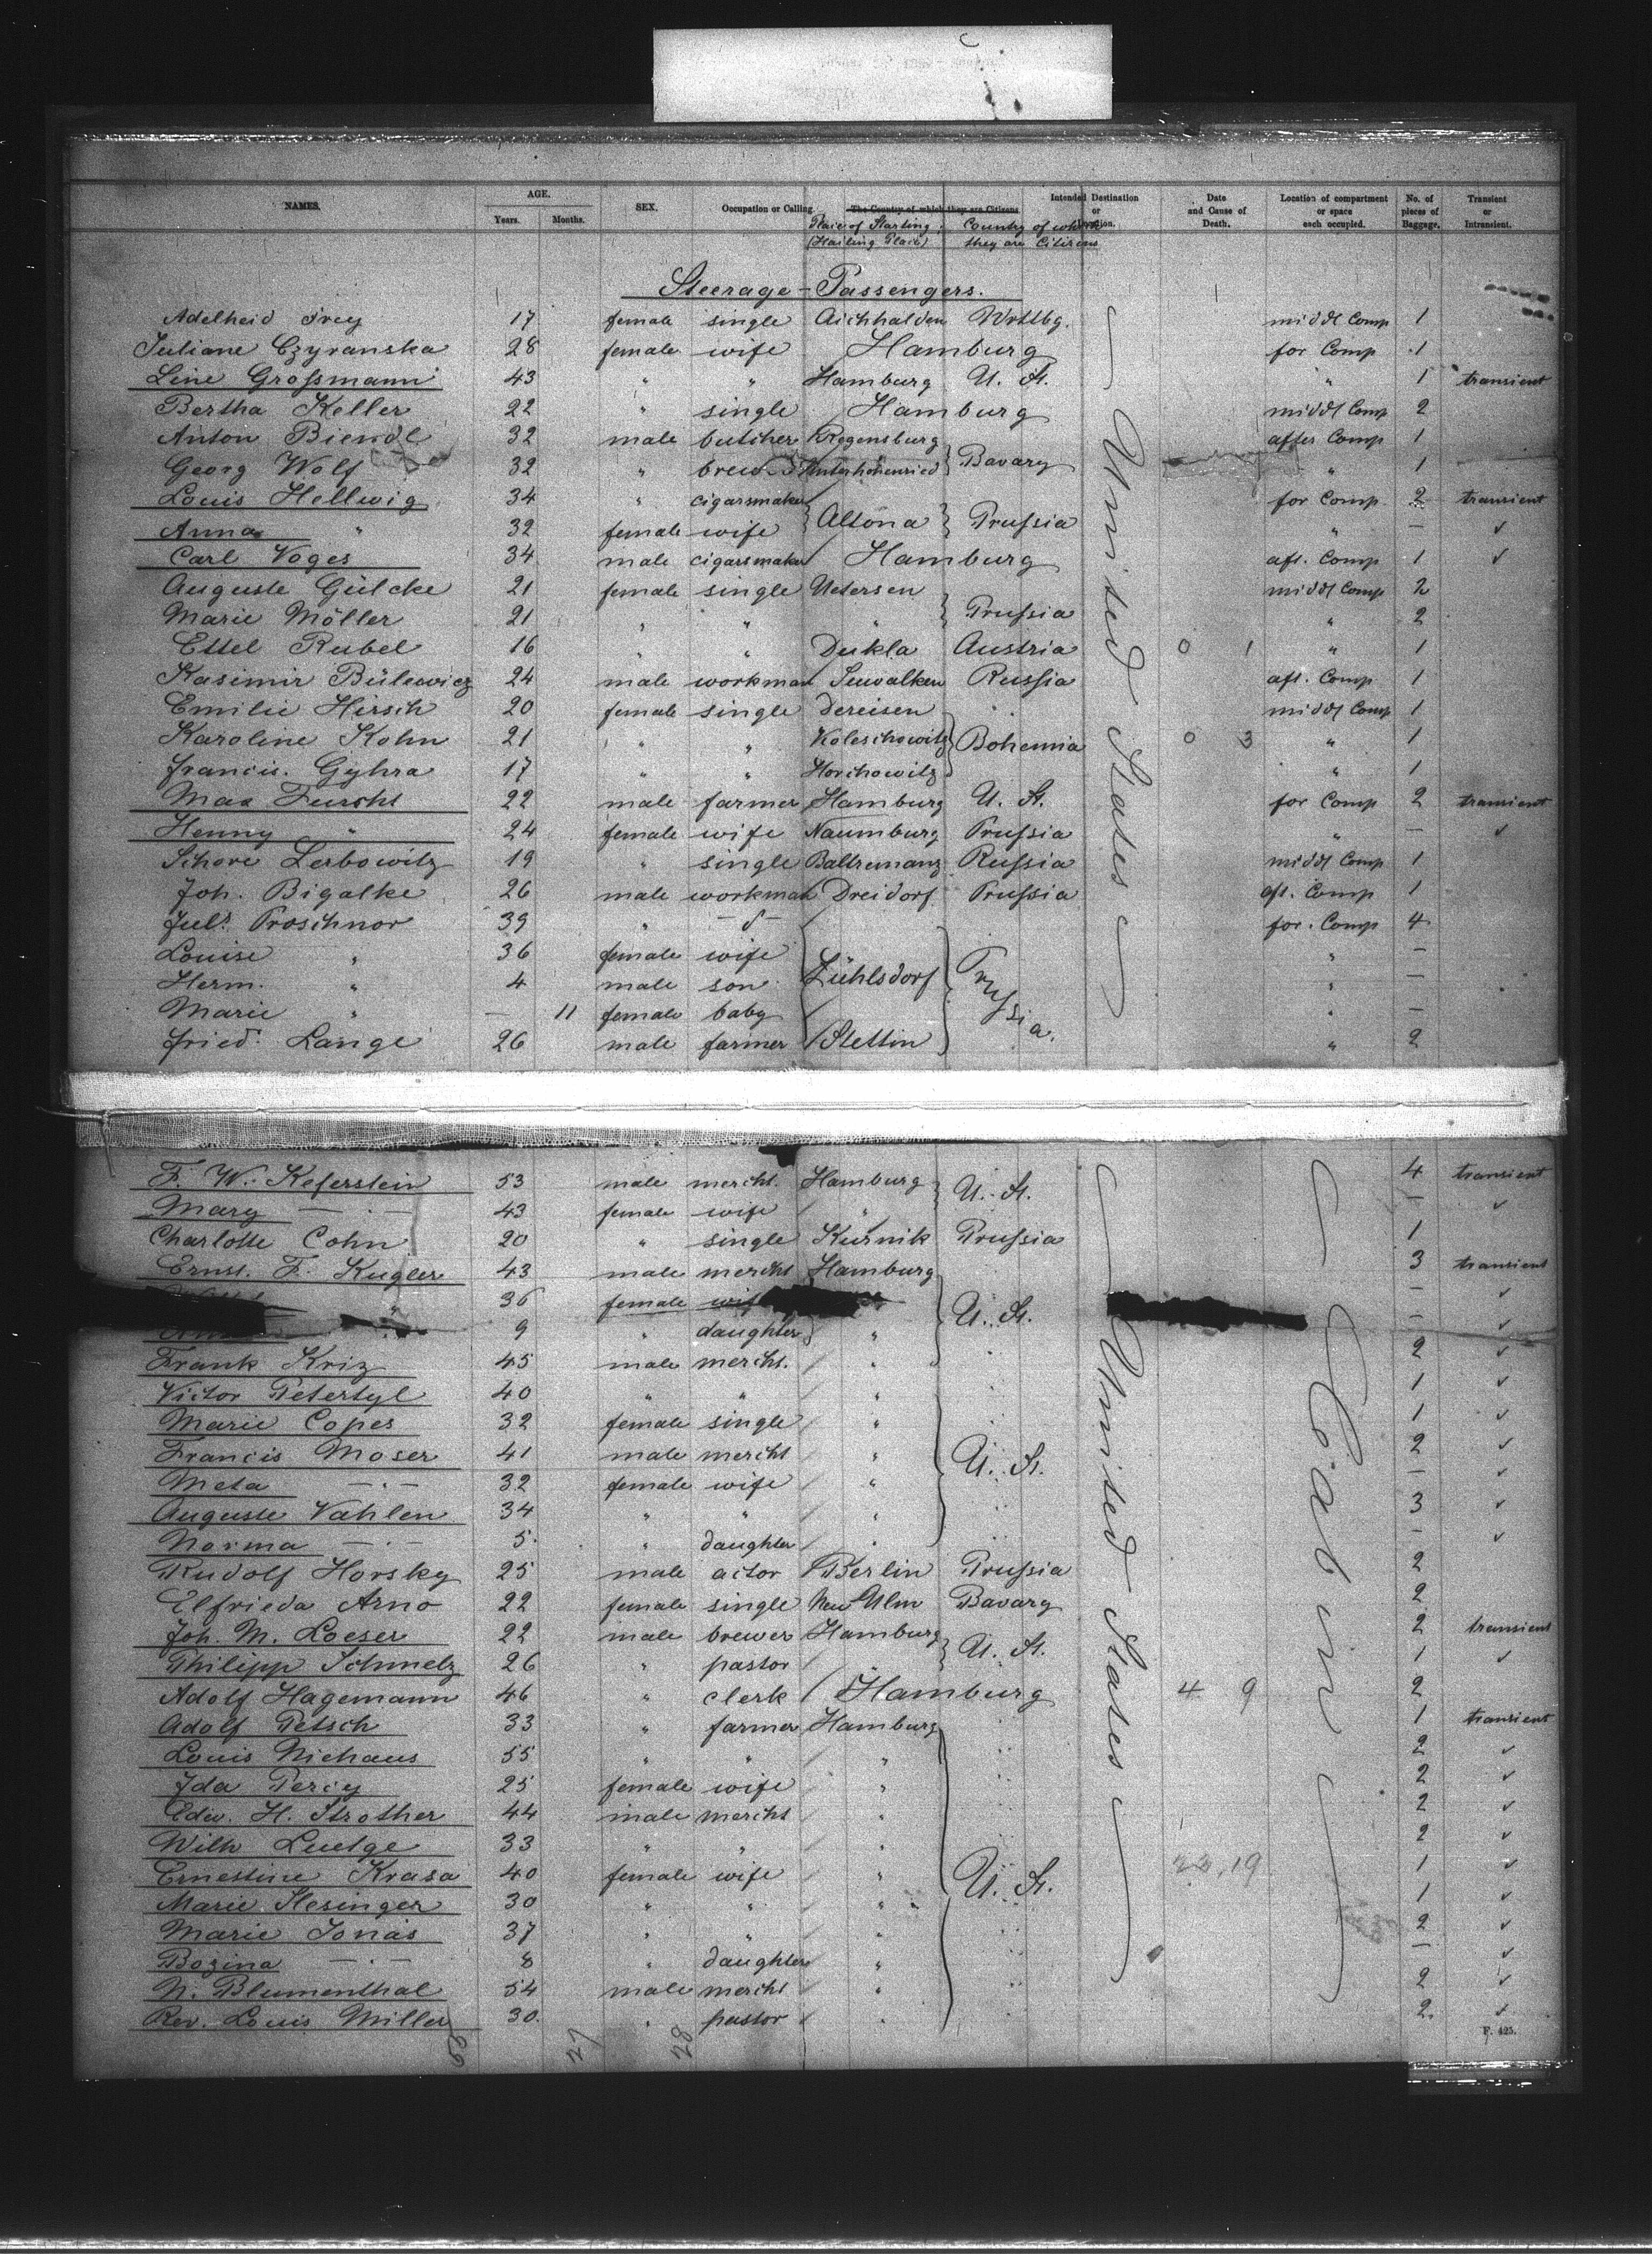 NAMES. AGE. SEX. Occupation or Calling. The Country of which they are Citizens Intended Destination or Location. Date and Cause of Death. Location of compartment or space each occupied. No. of pieces of Baggage. Transient or Intransient.
Years. Months. Place of Starting. (Hailing Place) Country of which they are Citizens
Steerage - Passengers.
Adelheid Frey 17 female single Aichhalden Wrttbg. middl Comp 1
Juliane Czyranska 28 female wife Hamburg for Comp 1
Line Großmann 43 " " Hamburg U. St. " 1 transient
Bertha Keller 22 " single Hamburg middl Comp 2
Anton Biendl 32 male butcher Regensburg after Comp 1
Georg Wolf 32 " brewer Unterhohenried Bavary " 1
Louis Hellwig 34 " cigarsmaker for Comp 2 transient
Anna " 32 female wife Altona Prußia " — ✓
Carl Voges 34 male cigarsmaker Hamburg aft. Comp 1 ✓
Auguste Gülcke 21 female single Uetersen middl Comp 2
Marie Möller 21 " " " Prußia " 2
Ettel Rubel 16 " " Dukla Austria 0 1 " 1
Kasimir Bülewicz 24 male workman Suwalken Rußia aft. Comp 1
Emilie Hirsch 20 female single Dereisen " middl Comp 1
Karoline Kohn 21 " " Koleschowitz Bohemia 0 3 " 1
Francis. Gyhra 17 " " Horchowitz " 1
Max Furcht 22 male farmer Hamburg U. St. for Comp 2 transient
Henny " 24 female wife Naumburg Prußia " — ✓
Schore Lerbowitz 19 " single Baltremanz Rußia middl Comp 1
Joh. Bigalke 26 male workman Dreidorf Prußia aft. Comp 1
Juls Proschnor 39 " for. Comp 4
Louise " 36 female wife " —
Herm. " 4 male son Zühlsdorf Prußia " —
Marie " — 11 female baby " —
Fried. Lange 26 male farmer Stettin " 2
United States
F. W. Keferstein 53 male mercht. Hamburg U. St. 4 transient
Mary — " — 43 female wife " — ✓
Charlotte Cohn 20 " single Kurnik Prußia 1
Ernst. F. Kugler 43 male mercht Hamburg 3 transient
" 36 female U. St. — ✓
9 " daughter " — ✓
Frank Kriz 45 male mercht. " 2 ✓
Victor Petertyl 40 " " " 1 ✓
Marie Copes 32 female single " 1 ✓
Francis Moser 41 male mercht " U. St. 2 ✓
Meta — " — 32 female wife " — ✓
Auguste Vahlen 34 " " " 3 ✓
Norma — " — 5 " daughter " — ✓
Rudolf Horsky 25 male actor Berlin Prußia 2
Elfrieda Arno 22 female single Neu Ulm Bavary 2
Joh. M. Loeser 22 male brewer Hamburg U. St. 2 transient
Philipp Schmelz 26 " pastor " 1 ✓
Adolf Hagemann 46 " clerk Hamburg 4 9 2
Adolf Petsch 33 " farmer Hamburg 1 transient
Louis Niehaus 55 " " " 2 ✓
Ida Percy 25 female wife " 2 ✓
Edw. H. Strother 44 male mercht " 2 ✓
Wilh Luetge 33 " " " 2 ✓
Ernestine Krasa 40 female wife " U. St. 1 ✓
Marie Slesinger 30 " " " 1 ✓
Marie Jonas 37 " " " 2 ✓
Bozina — " — 8 " daughter " — ✓
N. Blumenthal 54 male mercht " 2 ✓
Rev. Louis Miller 30 " pastor " 2 ✓
United States
Cabin
27 28
F. 425.